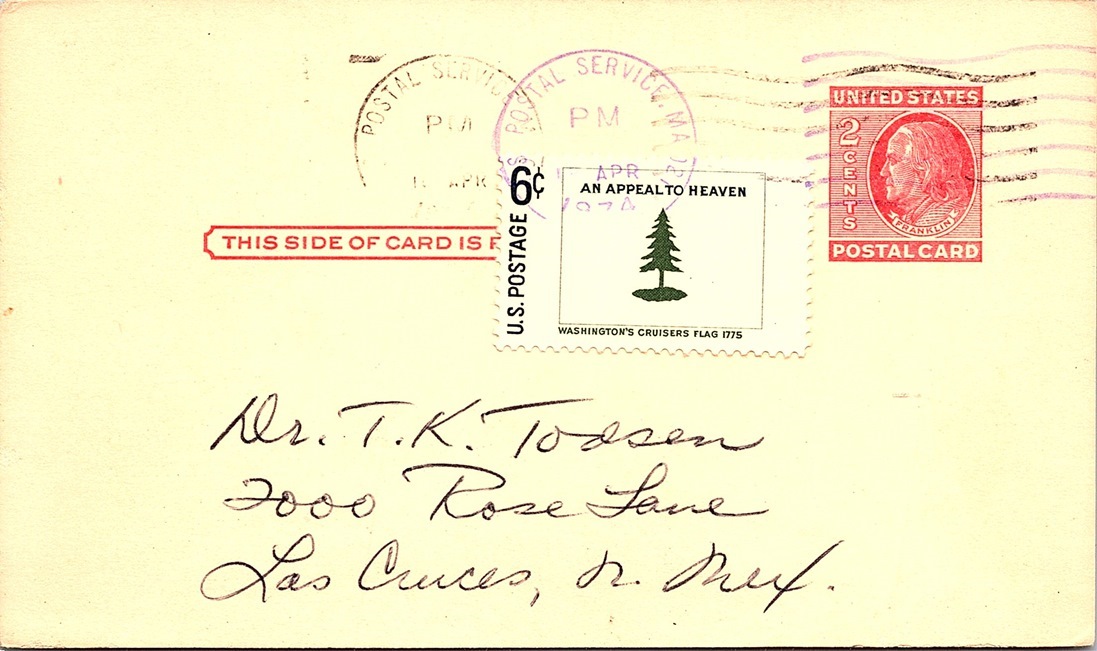 POSTAL SERVICE
PM
APR
POSTAL SERVICE, MA
PM
APR
1974
UNITED STATES
2 CENTS
FRANKLIN
POSTAL CARD
THIS SIDE OF CARD IS F
6¢
U.S. POSTAGE
AN APPEAL TO HEAVEN
WASHINGTON'S CRUISERS FLAG 1775
Dr. T. K. Todsen
2000 Rose Lane
Las Cruces, N. Mex.